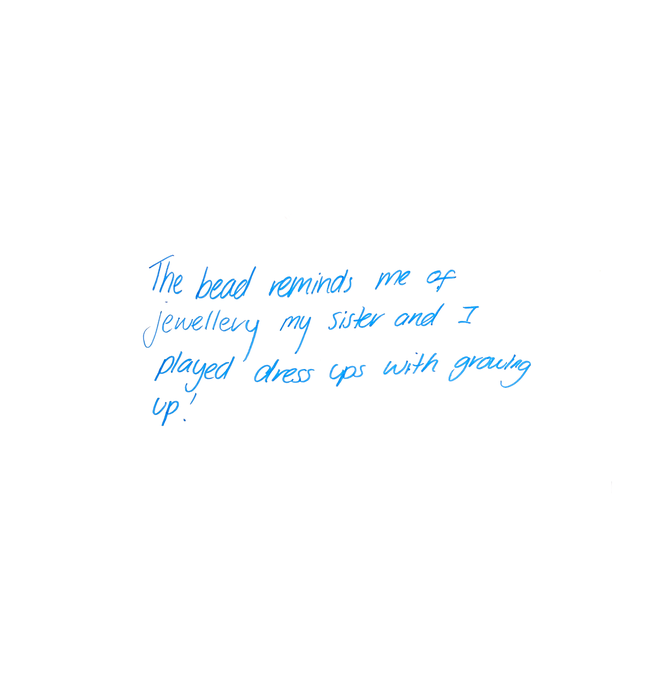 The bead reminds me of
jewellery my sister and I
played dress ups with growing
up!